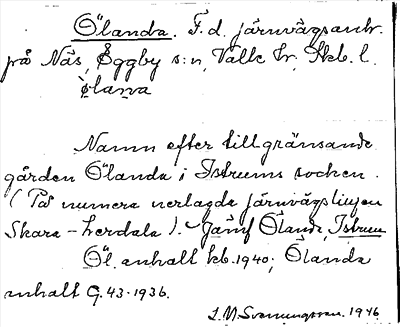 Ölanda. F. d. järnvägsanh.
på Näs, Eggby s:n, Valle hr, Skb. l.
ölana
Namn efter tillgränsande
gården Ölanda i Istrums socken.
(På numera nerlagda järnvägslinjen
Skara – Axvall). Jämf Ölanda, Istrum
Öl. anhalt kb. 1940; Ölanda
anhalt G. 43. 1936.
J. M. Svennungsson. 1946